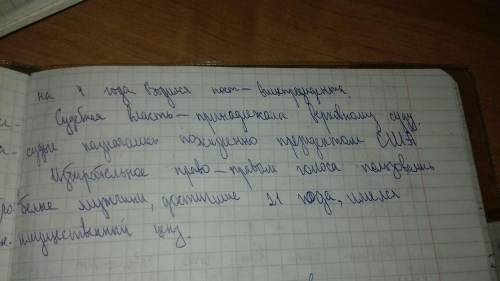 на 4 года. Водился пост – вицепрезидента.
Судебная власть – принадлежала Верховному суду,
судьи назначались пожизненно президентом США
Избирательное право – правом голоса пользовались
белые мужчины, достигшие 21 года, имелся
имущественный ценз.